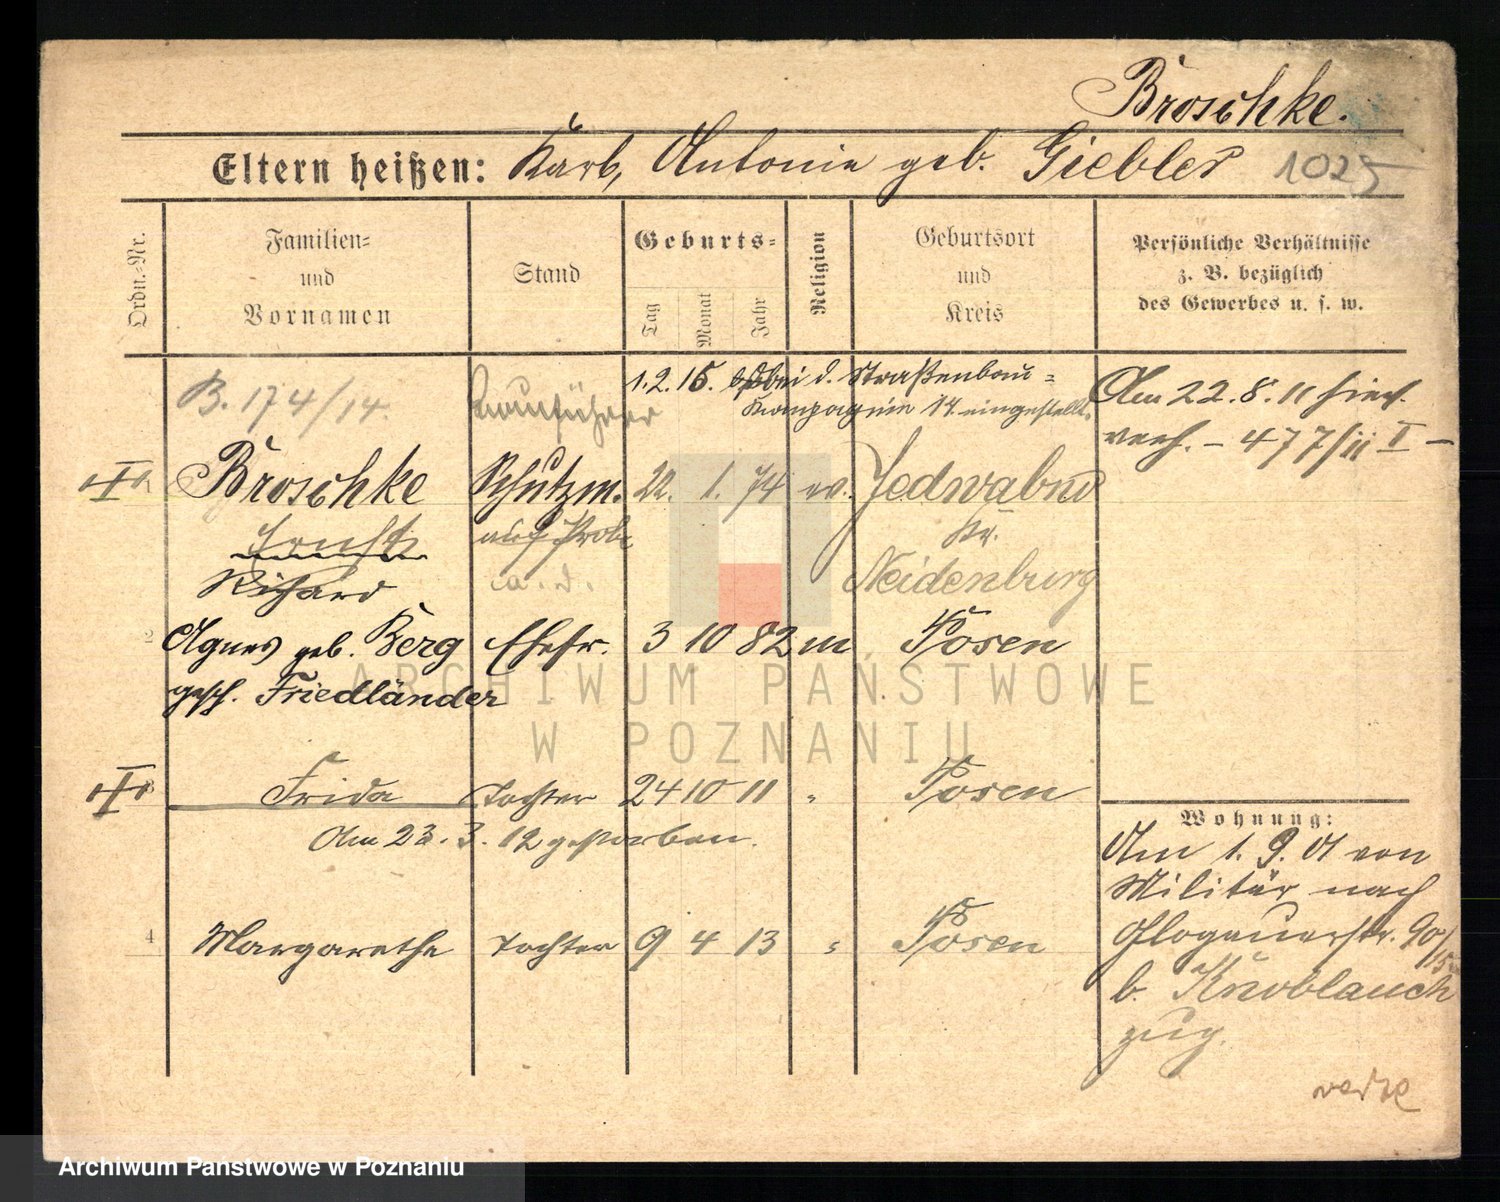 Broschke.
Eltern heißen: Karb, Antonie geb. Giebler 1025
Ordn.-Nr.
Familien-
und
Vornamen
Stand
Geburts-
Tag
Monat
Jahr
Religion
Geburtsort
und
Kreis
Persönliche Verhältnisse
z. B. bezüglich
des Gewerbes u. s. w.
B. 174/14.
1. 2. 15. bei d. Straßenbau-
Kompagnie 14. eingestellt.
Am 22. 8. 11 hier
verh. - 477/11 I -
Broschke Schutzm. 22. 1. 74 ev. Jedwabno
Ernst auf Probe Kr.
Richard a. d. Neidenburg
2 Agnes geb. Berg Ehefr. 3 10 82 m Posen
gesch. Friedländer
3 Frida Tochter 24 10 11 " Posen
Am 23. 3. 12 gestorben.
4 Margarethe Tochter 9 4 13 " Posen
Wohnung:
Am 1. 9. 01 von
Militär nach
Glogauerstr. 90/15
b. Knoblauch
zug.
ARCHIWUM PAŃSTWOWE
W POZNANIU
Archiwum Państwowe w Poznaniu